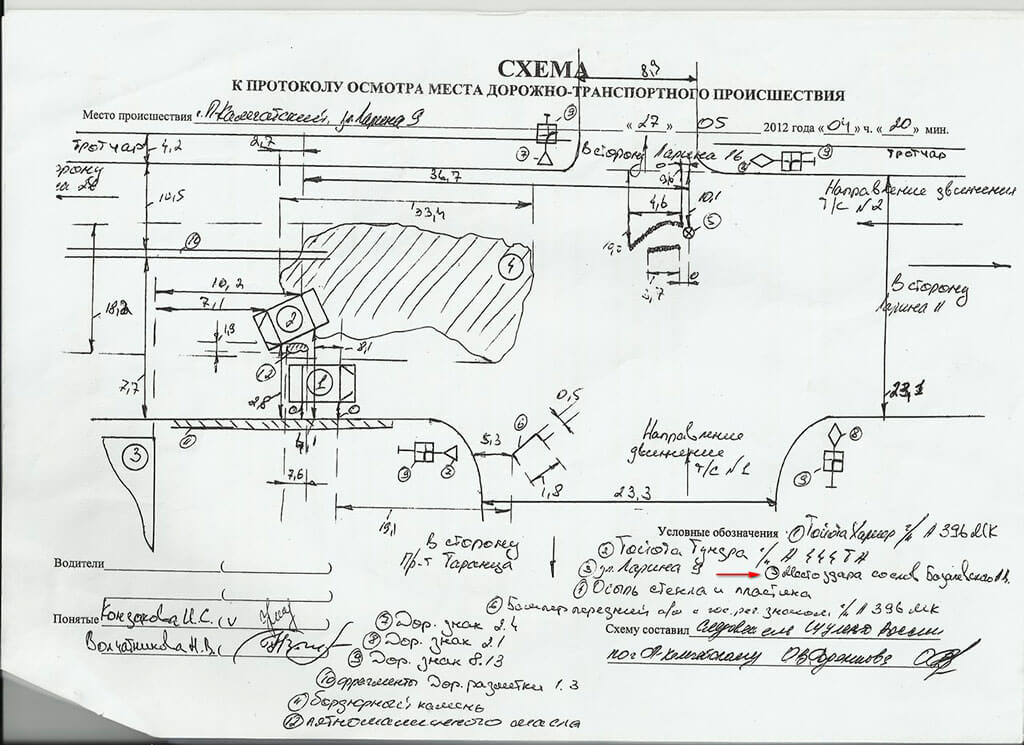 СХЕМА
К ПРОТОКОЛУ ОСМОТРА МЕСТА ДОРОЖНО-ТРАНСПОРТНОГО ПРОИСШЕСТВИЯ
Место происшествия г. П-Камчатский, ул. Ларина 9 « 27 » 05 2012 года « 04 » ч. « 20 » мин.
8,9
Тротуар
4,2
2,7
9
7
В сторону Ларина 16
9
Тротуар
36,7
33,4
10,5
4,6
10,1
5
Направление движения
Т/С № 2
10
4
0
3,7
В сторону
Ларина 11
10,2
7,1
18,2
2
1,9
8,1
12
1
7,7
2,8
0
0
23,1
11
3
0,5
6
5,3
Направление
движения
Т/С № 1
8
9
9
7
7,6
1,8
23,3
19,1
В сторону
Пр-т Таранца
Условные обозначения 1 Тойота Хариер г/н А 396 МК
2 Тойота Тундра г/н А 444 ТА
3 ул. Ларина 9
5 Место удара со слов
4 Осыпь стекла и пластика
6 Бампер передний а/м с гос. рег. знаком г/н А 396 МК
Водители ( )
( )
Понятые
7 Дор. знак 2.4
8 Дор. знак 2.1
9 Дор. знак 8.13
10 фрагменты Дор. разметки 1.3
11 бордюрный камень
12 пятно машинного масла
Схему составил Следователь СУ УМВД России
по г. П-Камчатскому